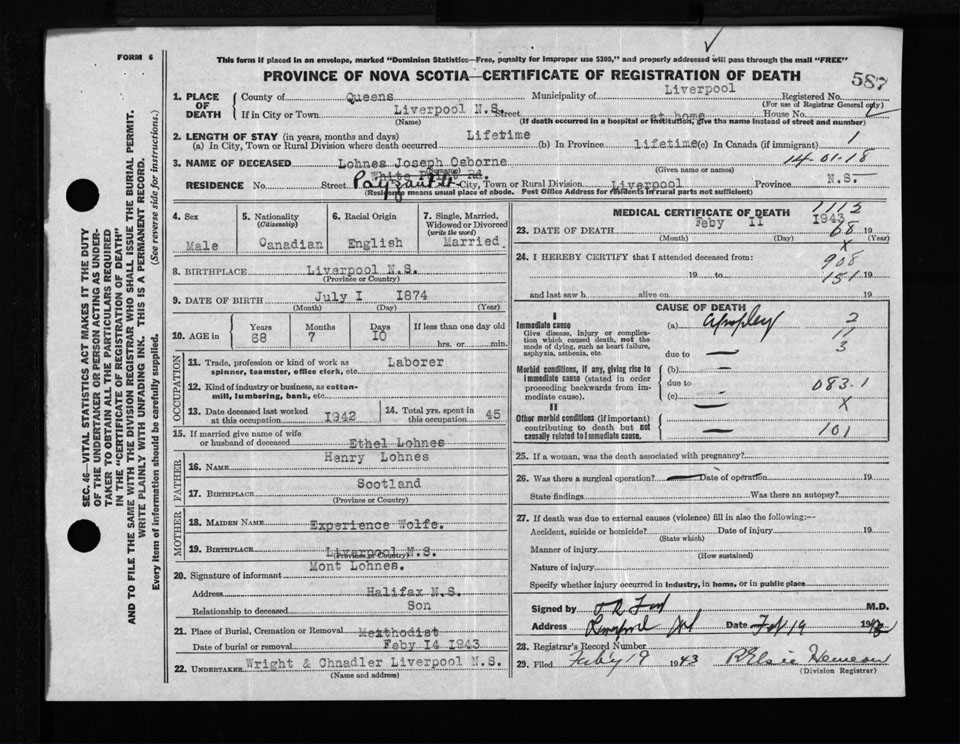 FORM 6
This form if placed in an envelope, marked "Dominion Statistics—Free, penalty for improper use $300," and properly addressed will pass through the mail "FREE"
PROVINCE OF NOVA SCOTIA—CERTIFICATE OF REGISTRATION OF DEATH
587
1. PLACE OF DEATH
County of Queens Municipality of Liverpool Registered No.
(For use of Registrar General only)
If in City or Town Liverpool N.S. Street at home House No.
(Name) (If death occurred in a hospital or institution, give the name instead of street and number)
2. LENGTH OF STAY (in years, months and days)
(a) In City, Town or Rural Division where death occurred Lifetime (b) In Province lifetime (c) In Canada (if immigrant) 1
3. NAME OF DECEASED Lohnes Joseph Osborne 14-01-18
(Surname) (Given name or names)
RESIDENCE No. Street City, Town or Rural Division Liverpool Province N.S.
(Residence means usual place of abode. Post Office Address for residents in rural parts not sufficient)
4. Sex
Male
5. Nationality
(Citizenship)
Canadian
6. Racial Origin
English
7. Single, Married, Widowed or Divorced
(write the word)
Married
8. BIRTHPLACE Liverpool N.S.
(Province or Country)
9. DATE OF BIRTH July I 1874
(Month) (Day) (Year)
10. AGE in
Years Months Days If less than one day old
68 7 10 hrs. or min.
OCCUPATION
11. Trade, profession or kind of work as spinner, teamster, office clerk, etc. Laborer
12. Kind of industry or business, as cotton-mill, lumbering, bank, etc.
13. Date deceased last worked at this occupation 1942
14. Total yrs. spent in this occupation 45
15. If married give name of wife or husband of deceased Ethel Lohnes
FATHER
16. NAME Henry Lohnes
17. BIRTHPLACE Scotland
(Province or Country)
MOTHER
18. MAIDEN NAME Experience Wolfe.
19. BIRTHPLACE Liverpool N.S.
(Province or Country)
20. Signature of informant Mont Lohnes.
Address Halifax N.S.
Relationship to deceased Son
21. Place of Burial, Cremation or Removal Methodist
Date of burial or removal Feby I4 1943
22. UNDERTAKER Wright & Chnadler Liverpool N.S.
(Name and address)
MEDICAL CERTIFICATE OF DEATH 1112
23. DATE OF DEATH Feby II 1943 68 19
(Month) (Day) (Year)
X
24. I HEREBY CERTIFY that I attended deceased from: 908
19 to 151 19
and last saw h alive on 19
CAUSE OF DEATH
I
Immediate cause
Give disease, injury or complication which caused death, not the mode of dying, such as heart failure, asphyxia, asthenia, etc.
(a) 2
11
due to 3
Morbid conditions, if any, giving rise to immediate cause (stated in order proceeding backwards from immediate cause).
(b)
due to 083.1
(c)
X
II
Other morbid conditions (if important) contributing to death but not causally related to immediate cause.
101
25. If a woman, was the death associated with pregnancy?
26. Was there a surgical operation? Date of operation 19
State findings Was there an autopsy?
27. If death was due to external causes (violence) fill in also the following:—
Accident, suicide or homicide? Date of injury 19
(State which)
Manner of injury
(How sustained)
Nature of injury
Specify whether injury occurred in industry, in home, or in public place
Signed by M.D.
Address Date Feb 19 19
28. Registrar's Record Number
29. Filed Feb'y 19 1943
(Division Registrar)
SEC. 46—VITAL STATISTICS ACT MAKES IT THE DUTY
OF THE UNDERTAKER OR PERSON ACTING AS UNDER-
TAKER TO OBTAIN ALL THE PARTICULARS REQUIRED
IN THE "CERTIFICATE OF REGISTRATION OF DEATH"
AND TO FILE THE SAME WITH THE DIVISION REGISTRAR WHO SHALL ISSUE THE BURIAL PERMIT.
WRITE PLAINLY WITH UNFADING INK. THIS IS A PERMANENT RECORD.
Every item of information should be carefully supplied. (See reverse side for instructions.)